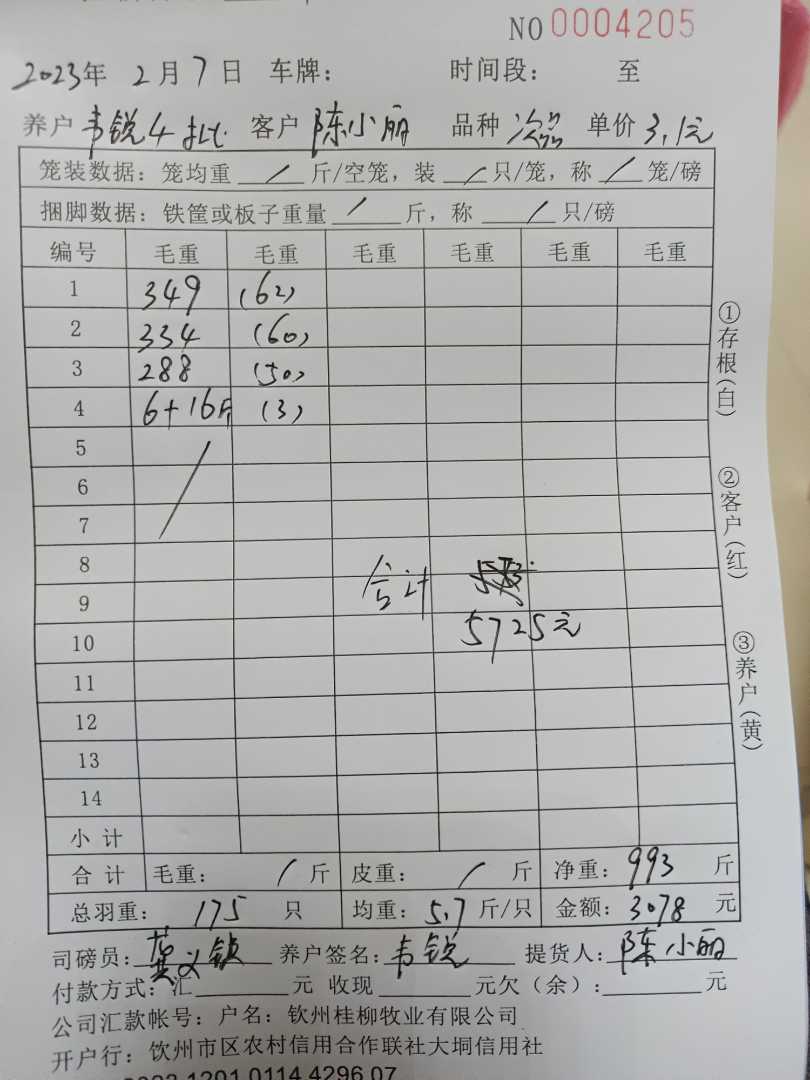 NO 0004205
2023年 2月7日 车牌： 时间段： 至
养户 韦锐4批 客户 陈小丽 品种 次品 单价 3.1元
笼装数据：笼均重 / 斤/空笼，装 / 只/笼，称 / 笼/磅
捆脚数据：铁筐或板子重量 / 斤，称 / 只/磅
编号 毛重 毛重 毛重 毛重 毛重 毛重
1 349 (62)
2 334 (60)
3 288 (50)
4 6+16斤 (3)
5
6
7
8
9 合计
10 5725元
11
12
13
14
小计
合计 毛重： / 斤 皮重： / 斤 净重：993 斤
总羽重： 175 只 均重：5.7斤/只 金额：3078 元
司磅员： 养户签名：韦锐 提货人：陈小丽
付款方式：汇 元 收现 元欠（余）： 元
公司汇款帐号：户名：钦州桂柳牧业有限公司
开户行：饮州市区农村信用合作联社大垌信用社
①存根(白)
②客户(红)
③养户(黄)